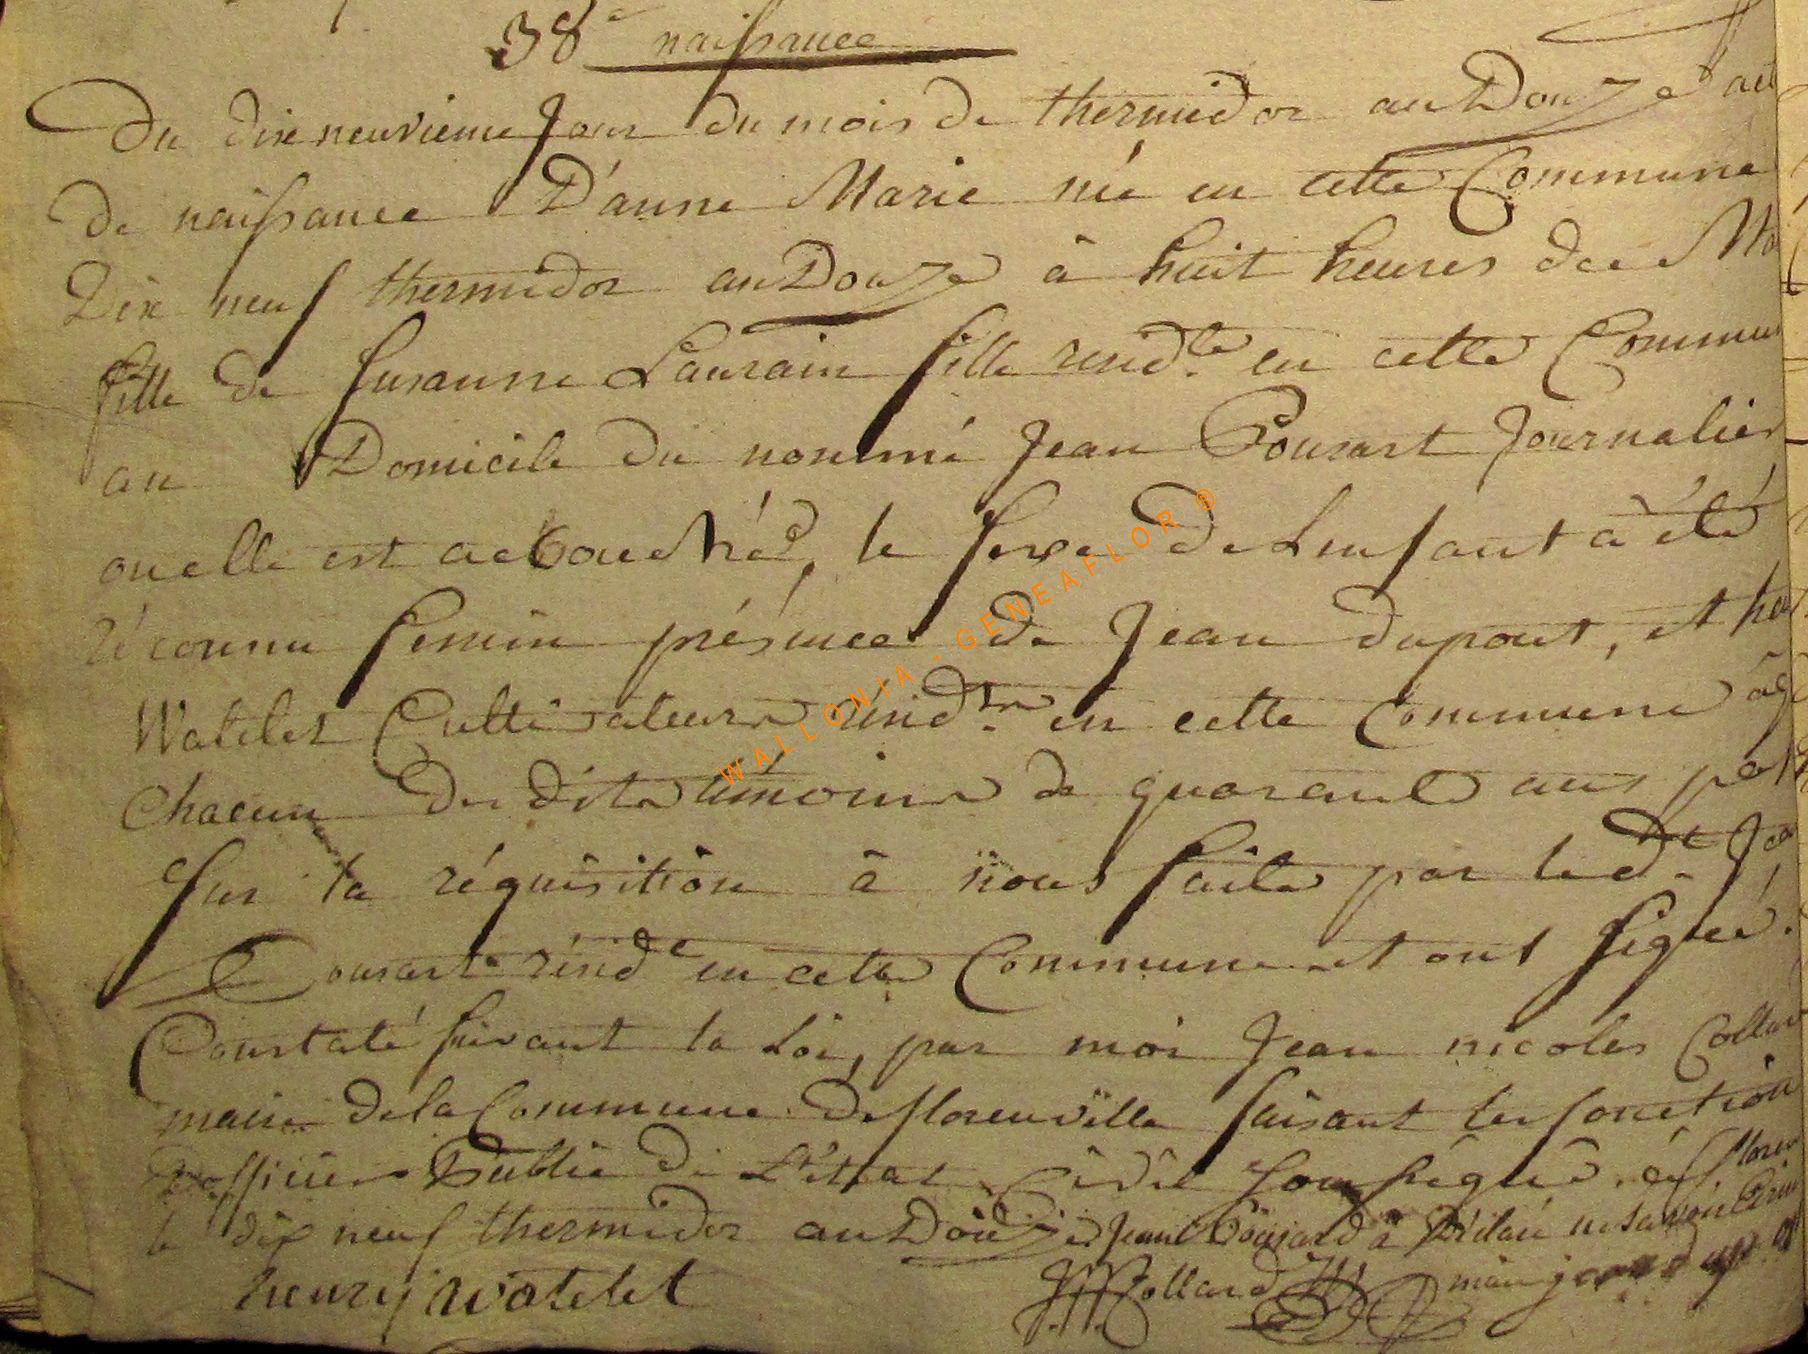 38e naissance
Du dix neuvieme Jour du mois de thermidor an Douze act
De naissance D'anne Marie née en cette Commune
Dix neuf thermidor an Douze à huit heures de Ma
fille de Susanne Laurain fille resid.te en cette Commun
au Domicile du nommé Jean Pousart Journalier
ou elle est accouchée, le sexe de Lenfant à été
réconnu femin présence de Jean dupont, et he
Watelet Cultivateurs resid.ts en cette Commune âgé
Chacun des dits témoins de quarante ans
Sur la réquisition à nous faite par le d.t Jea
Pousart résid.t en cette Commune et ont signé.
Constaté suivant la Loi, par moi Jean nicolas Collar
maire de la Commune de florenville faisant les fonction
D'officier Public de L'état Civil Soussigné. à floren
le dix neuf thermidor an Douze. Jean Pousard à Déclaré ne savoir Ecrire
henry Watelet
Collard maire jean dupont
WALLONIA - GENEAFLOR ®